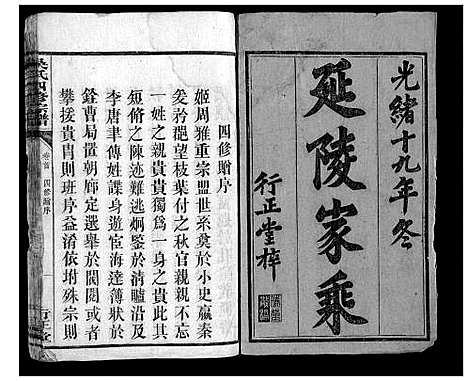 光緒十九年冬
延陵家乘
行正堂梓
四修贈序
姬周雅重宗盟世系奠於小史嬴秦
爰矜郡望枝葉付之秋官親親不忘
一姓之親貴貴獨爲一身之貴此其
短脩之陳迹難逃炯鑒於清驢沿及
李唐聿傳姓諜身遊宦海達薄狀於
銓曹局置朝廊定選舉於閥閱或者
攀援貴冑則班序益淆依坿殊宗則
吳氏四修宗譜
卷首
四修贈序
行正堂